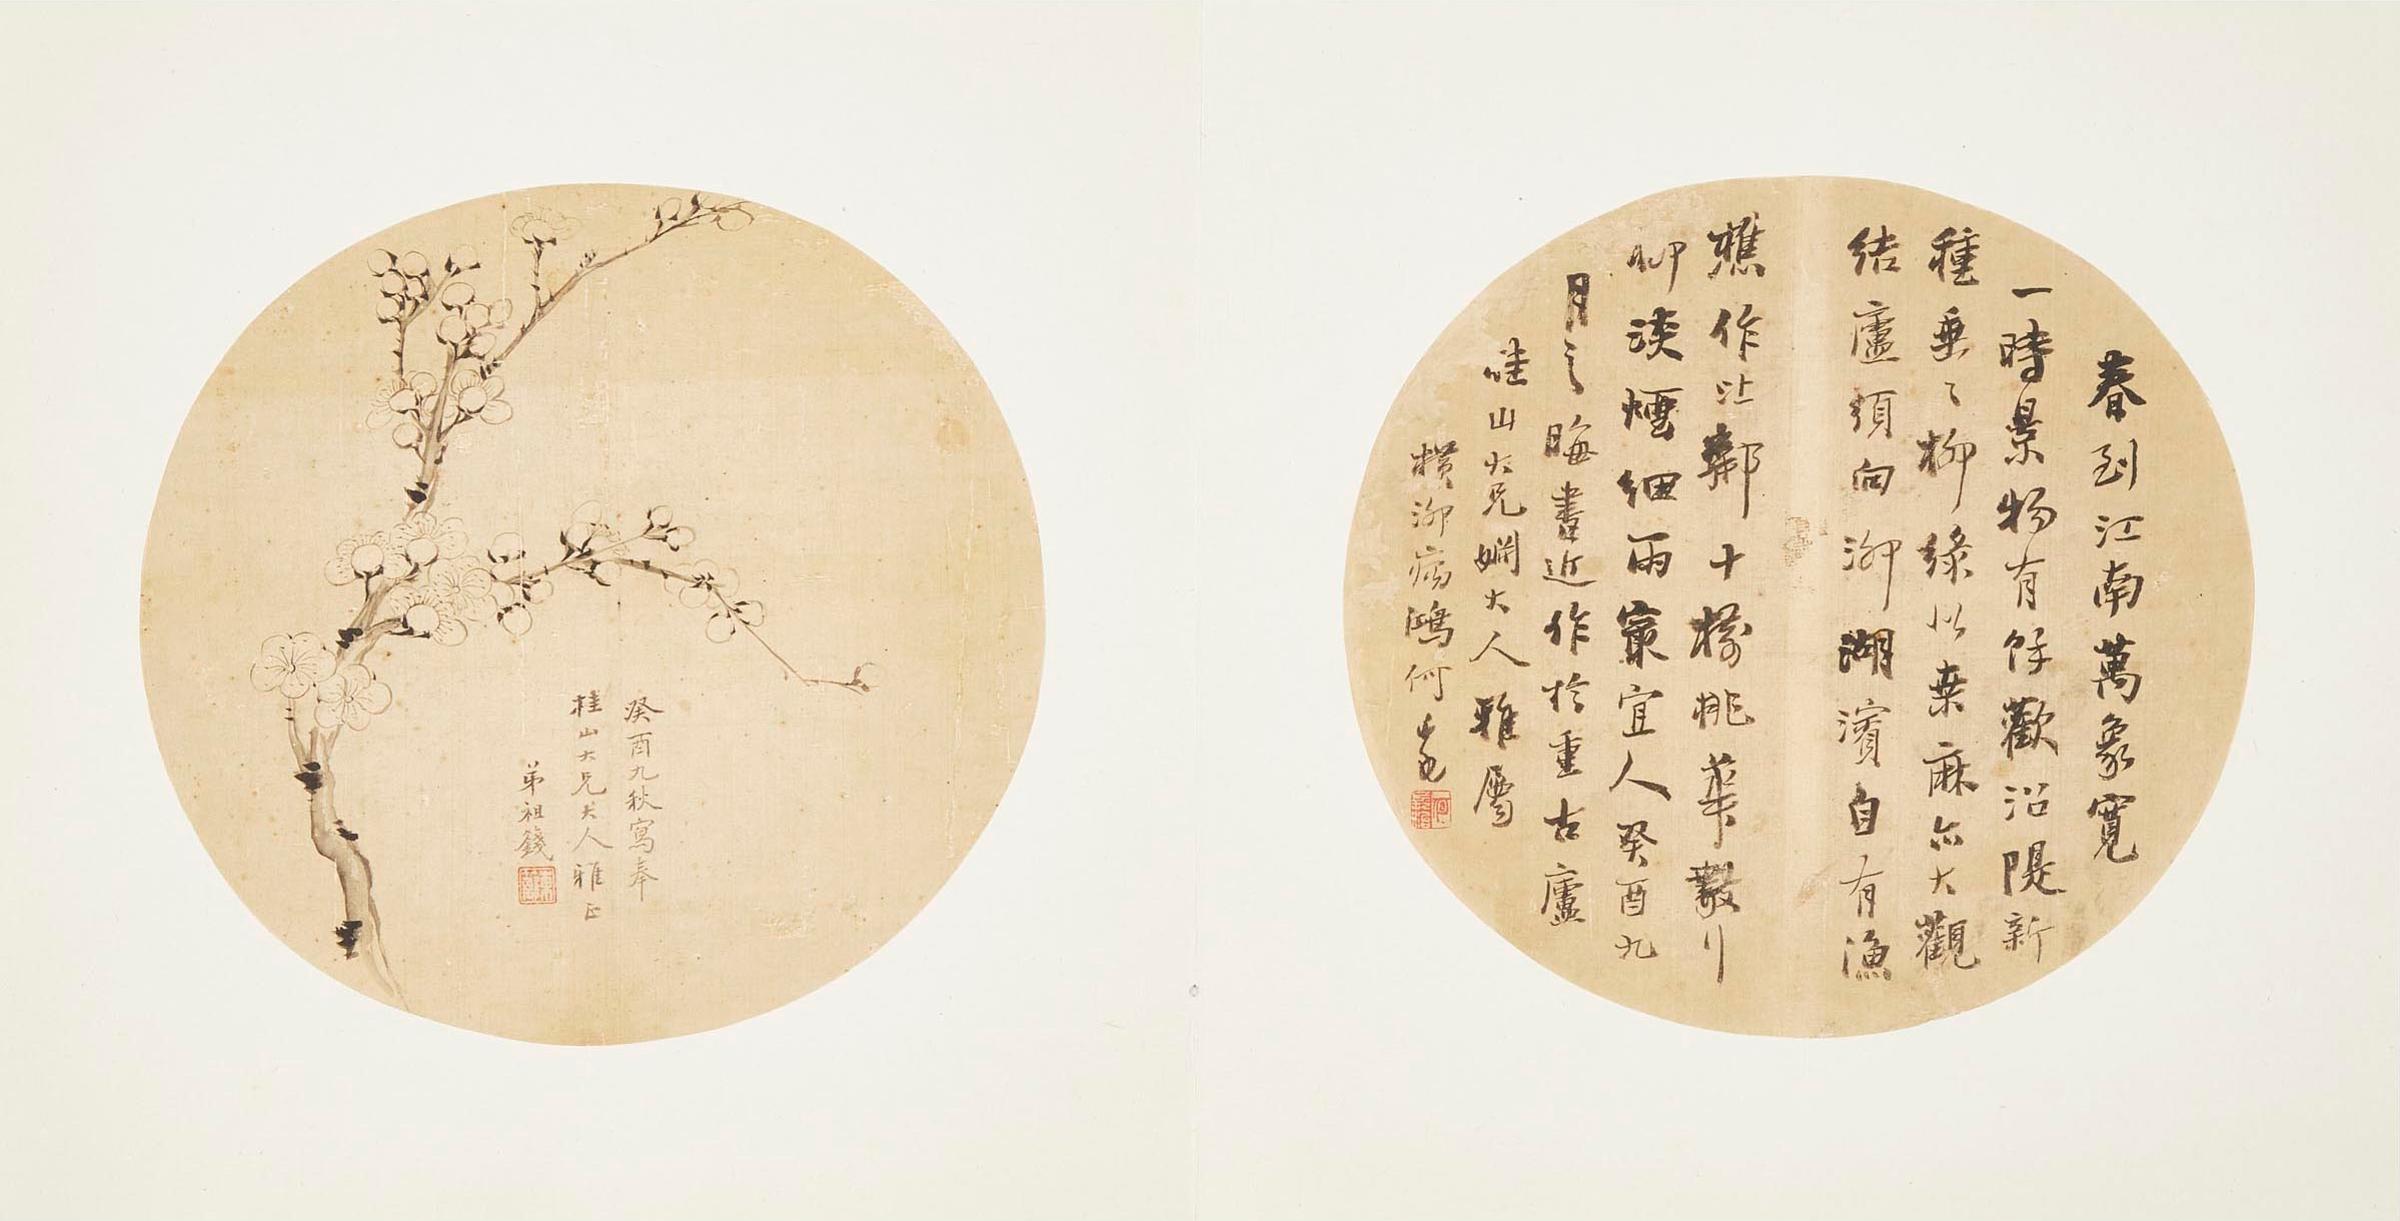 春到江南萬象寬
一時景物有餘歡沿隄新
種垂〻柳綠似桒麻亦大觀
結廬須向泖湖濱自有漁
樵作比鄰十樹桃華數行
柳淡煙細雨最宜人癸酉九
月之晦書近作於重古廬
桂山大兄姻大人雅屬
橫泖病鴻何
癸酉九秋寫奉
桂山大兄大人雅正
弟祖錢